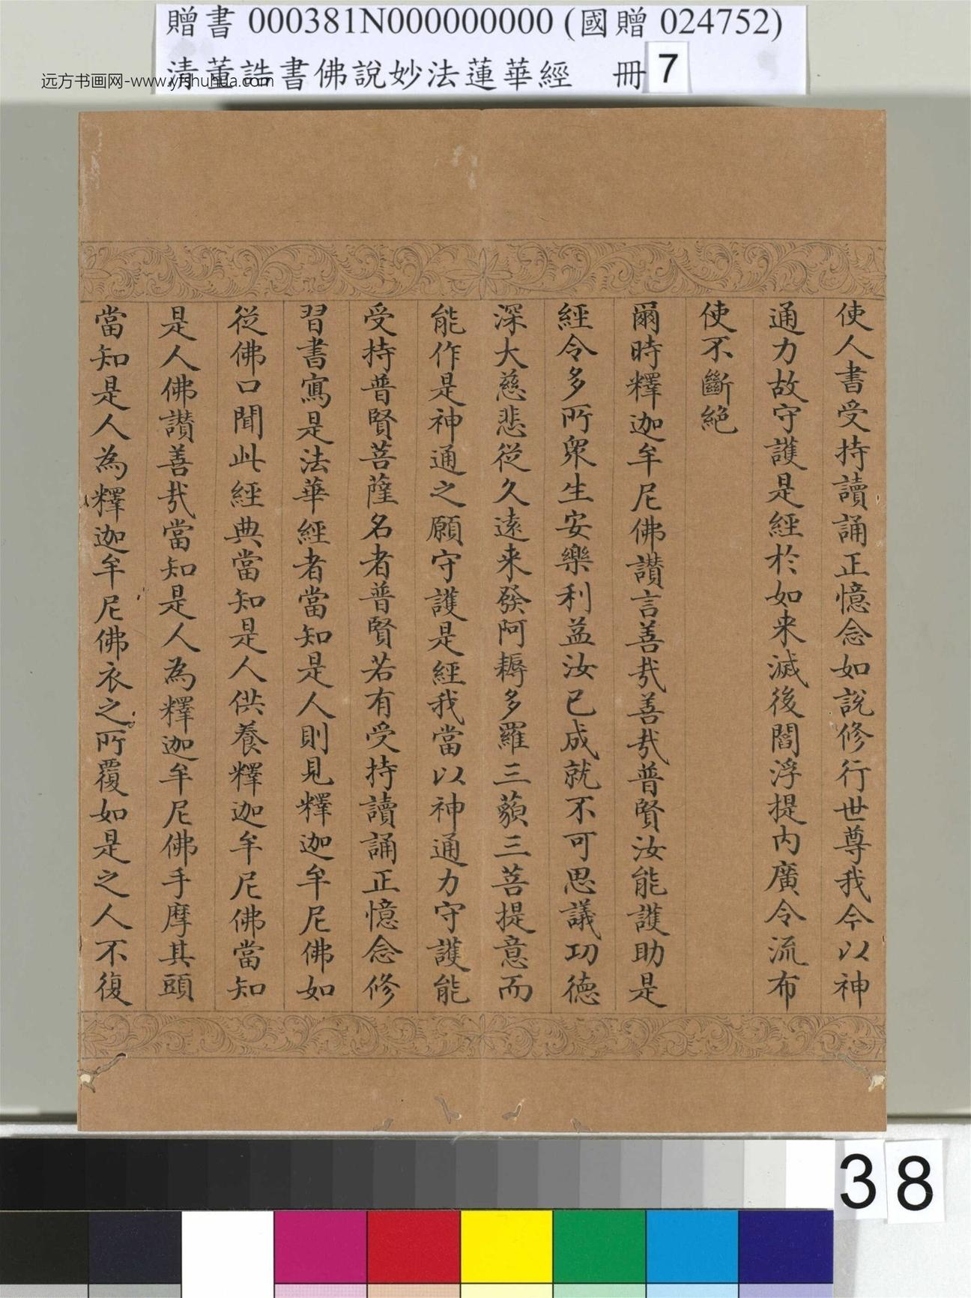 贈書 000381N000000000 (國贈 024752)
清董誥書佛說妙法蓮華經 冊 7
远方书画网-www.yfshuhua.com
使人書受持讀誦正憶念如說修行世尊我今以神
通力故守護是經於如来滅後閻浮提内廣令流布
使不斷絕
爾時釋迦牟尼佛讚言善哉善哉普賢汝能護助是
經令多所衆生安樂利益汝已成就不可思議功德
深大慈悲從久遠来發阿耨多羅三藐三菩提意而
能作是神通之願守護是經我當以神通力守護能
受持普賢菩薩名者普賢若有受持讀誦正憶念修
習書寫是法華經者當知是人則見釋迦牟尼佛如
從佛口聞此經典當知是人供養釋迦牟尼佛當知
是人佛讚善哉當知是人為釋迦牟尼佛手摩其頭
當知是人為釋迦牟尼佛衣之所覆如是之人不復
38